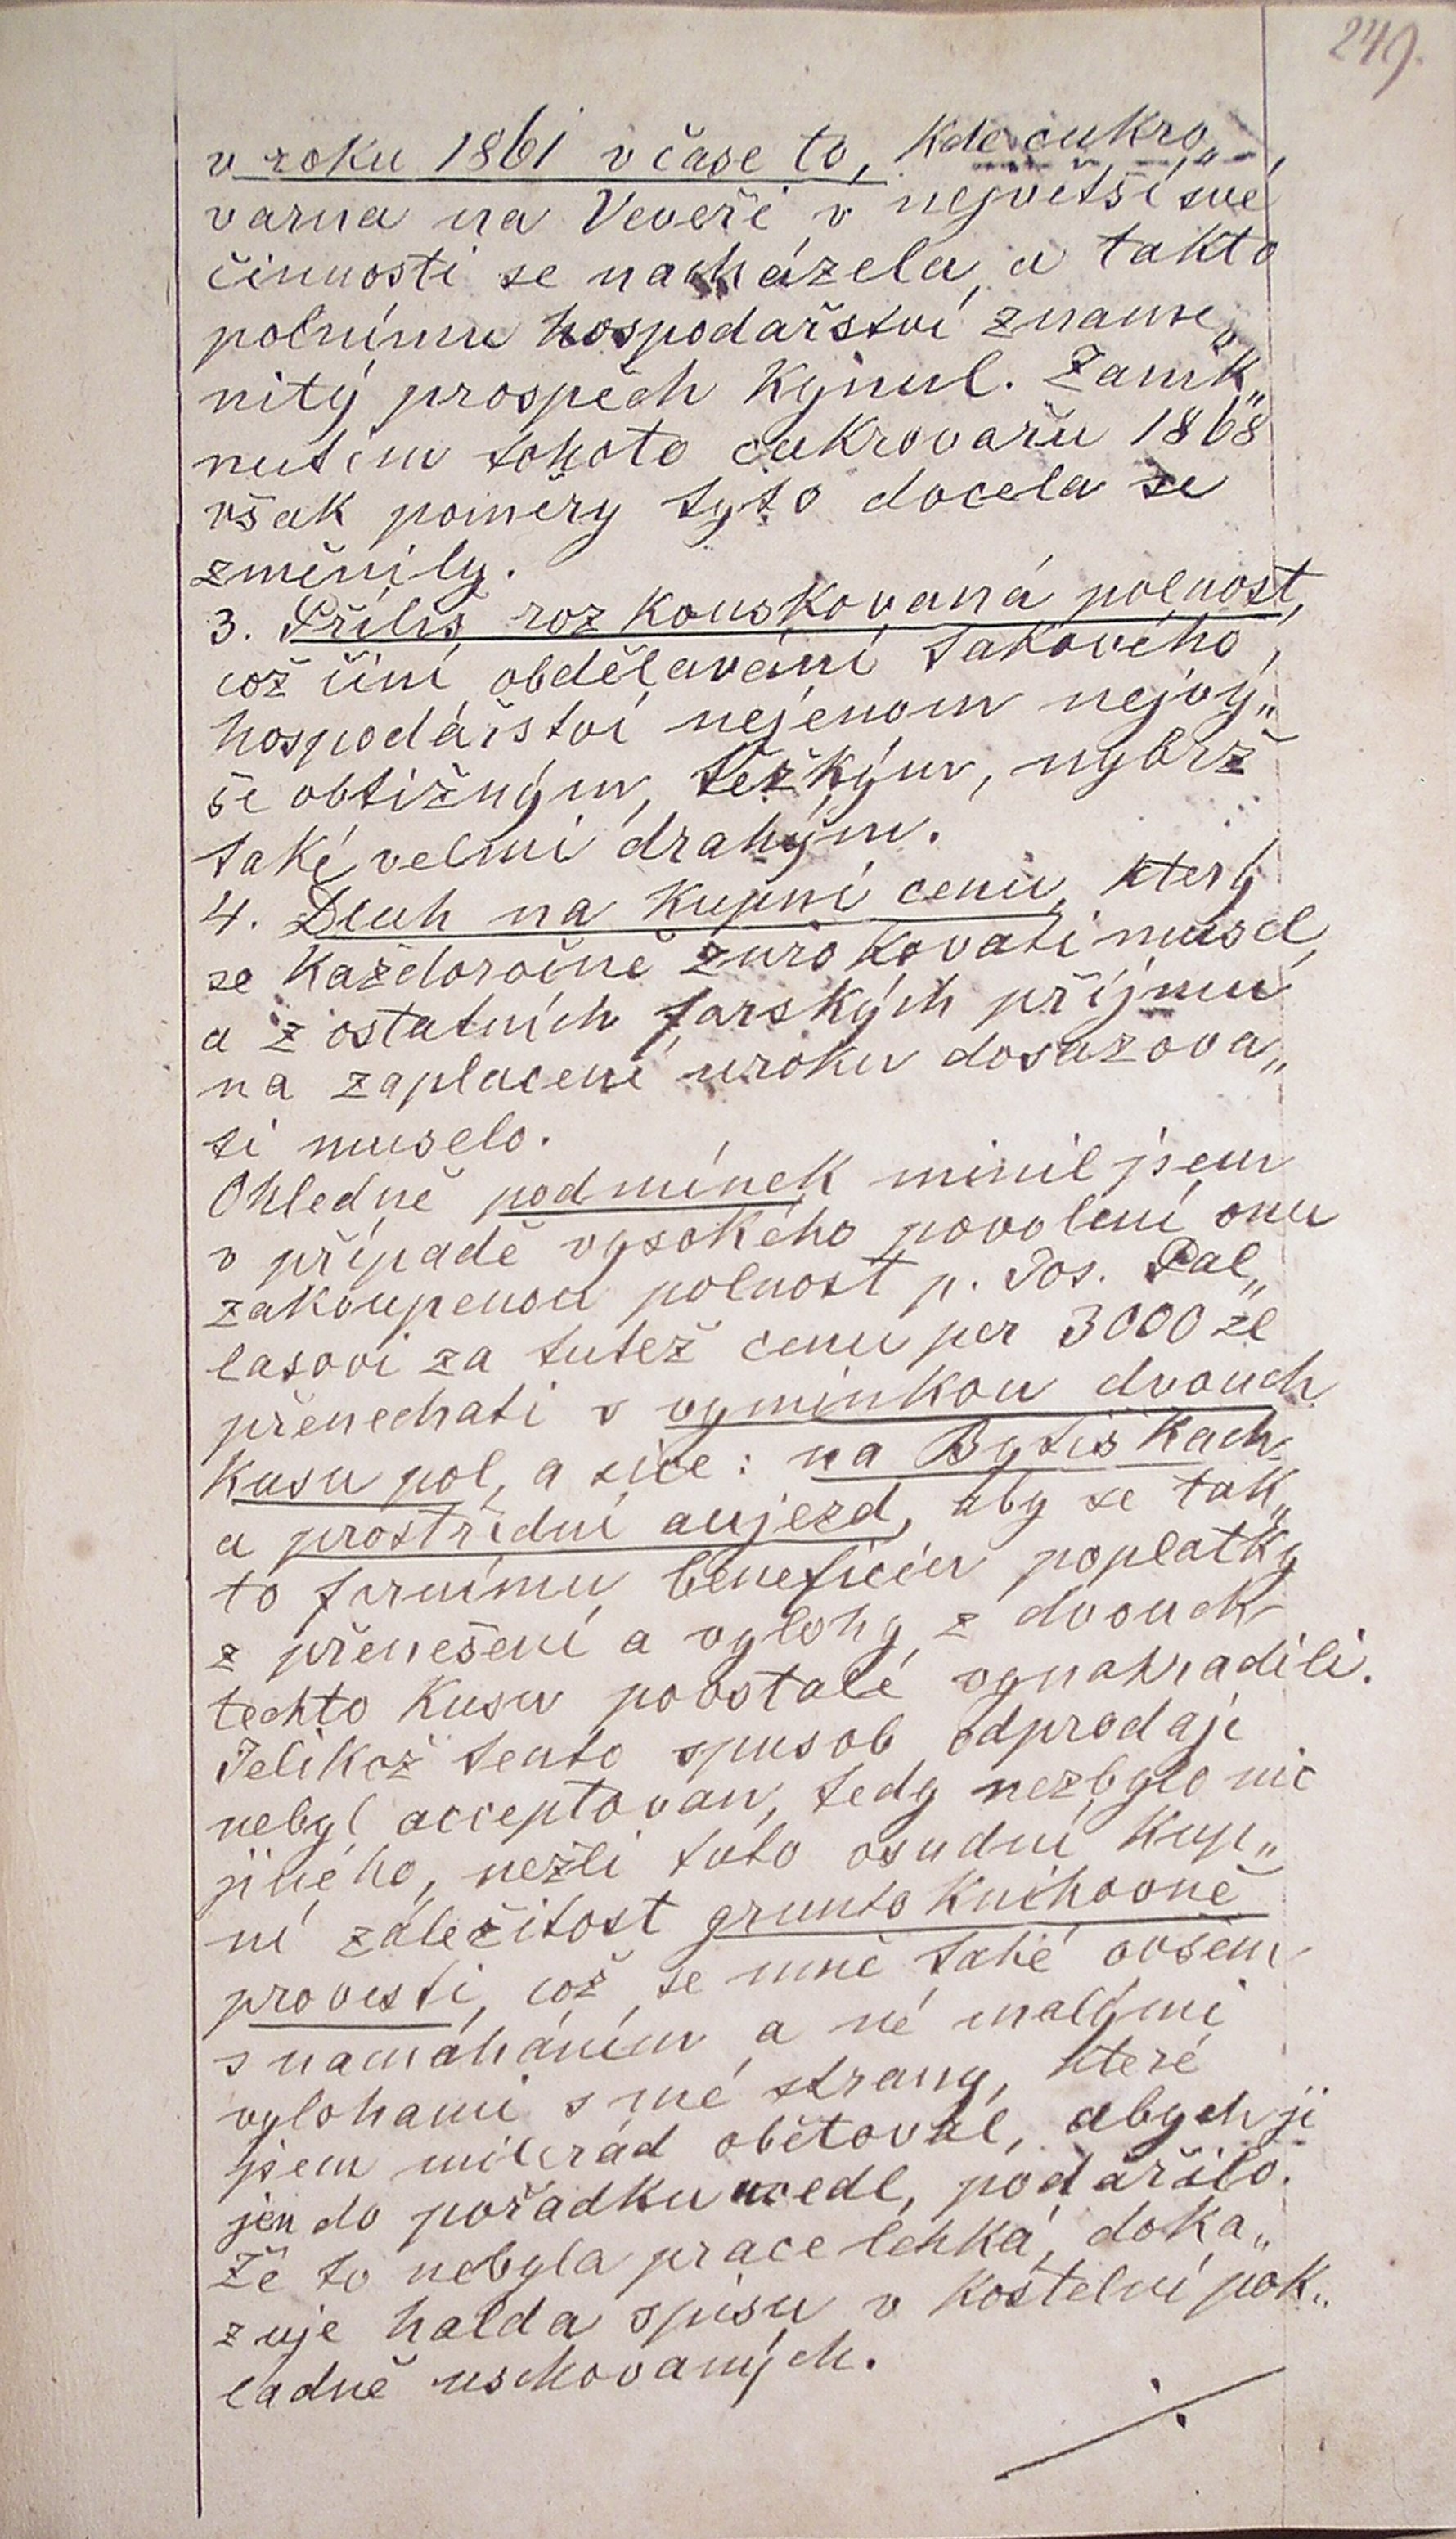 249.
v roku 1861 v čase to, kde cukro„
varna na Veveří v největší své
činnosti se nacházela, a takto
polnímu hospodařství zname„
nitý prospěch kynul. Zanik„
nutím tohoto cukrovařu 1868
však poměry tyto docela se
změnily.
3. Přílíš rozkouskovaná polnost,
což činí obdělavání takového
hospodářství nejenom nejvý„
še obtižným, težkým, nybrž
také velmi drahým.
4. Dluh na kupní cenu, který
se každoročně zurokovati musel,
a z ostatních farských příjmu
na zaplacení uroku dosazova„
ti muselo.
Ohledně podmínek mínil jsem
v případě vysokého povolení onu
zakoupenou polnost p. Jos. Pal„
lasovi za tutež cenu per 3000 zl
přenechati v vyminkou dvouch
kusu pol, a sice: na Bytiškach
a prostřední aujezd, aby se tak„
to farnímu beneficiu poplatky
z přenešení a vylohy z dvouch
techto kusu povstalé vynahradili.
Jelikož tento spusob odprodaje
nebyl acceptovan, tedy nezbylo nic
jiného, nežli tuto osudní kup„
ní záležitost grunto knihovně
provesti, což se mně také ovšem
s namáháním a né malými
vylohami s mé strany, které
jsem milerád obětoval, abych ji
jen do pořadku uvedl, podařilo.
Že to nebyla prace lehká, doka„
zuje halda spisu v kostelní pok„
ladně uschovaných.